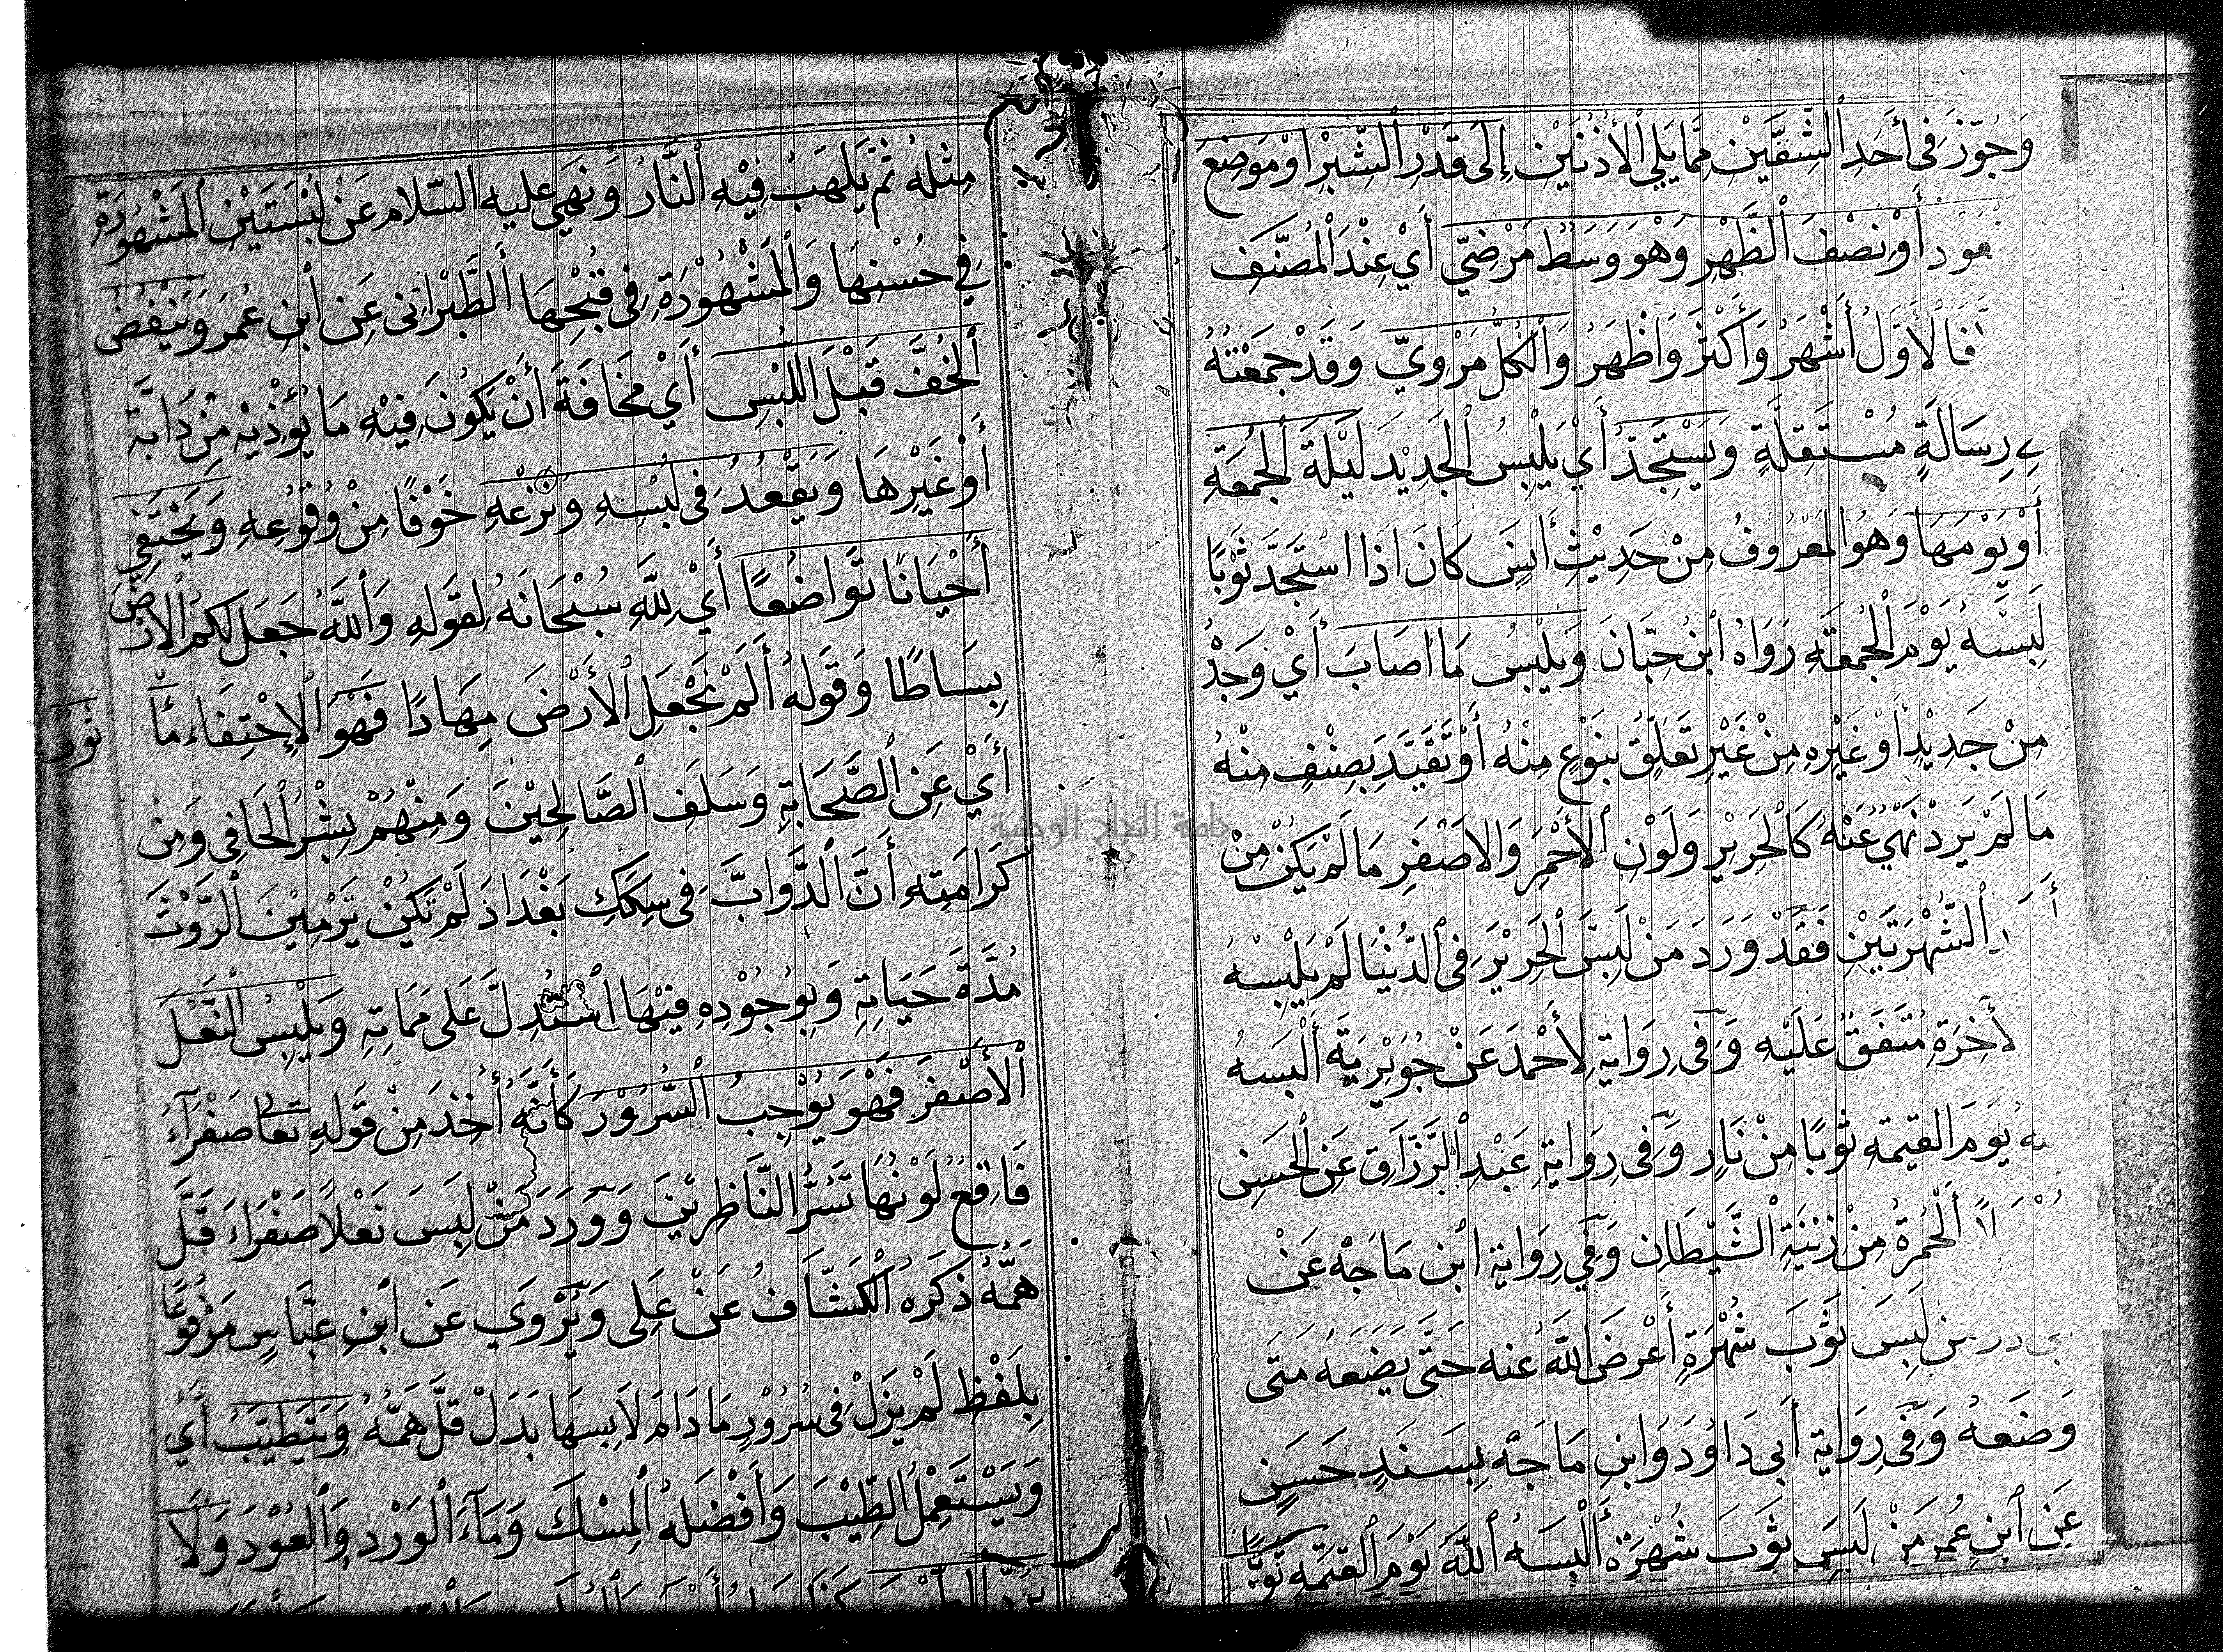 وَجُوِّزَ فِى أَحَدِ ٱلشِّقَّيْنِ مِمَّا يَلِي ٱلْأُذُنَيْنِ إِلَى قَدْرِ ٱلشِّبْرِ اَوْ مَوْضِعَ
أَوْ نِصْفَ ٱلظَّهْرِ وَهْوَ وَسَطٌ مَرْضِيّ أَيْ عِنْدَ ٱلْمُصَنَّفِ
فَالْأَوَّلُ أَشْهَرُ وَأَكْثَرُ وَاَظْهَرُ وَالْكُلُّ مَرْوِيّ وَقَدْ جَمَعْتُهُ
رِسَالَةٍ مُسْتَقِلَّةٍ وَيَسْتَجِدُّ أَيْ يَلْبِسُ ٱلْجَدِيْدَ لَيْلَةَ ٱلْجُمُعَةِ
أَوْ يَوْمَهَا وَهُوَ ٱلْمَعْرُوفُ مِنْ حَدِيْثِ أَنَسٍ كَانَ اذَا اسْتَجَدَّ ثَوْبًا
لَبِسَهُ يَوْمَ ٱلْجُمُعَةِ رَوَاهُ ٱبْنُ حِبَّانَ وَيَلْبِسُ مَا اصَابَ أَيْ وَجَدْ
مِنْ جَدِيْدٍ أَوْ غَيْرِهِ مِنْ غَيْرِ تَعَلُّقٍ بِنَوْعٍ مِنْهُ أَوْ تَقَيَّدَ بِصِنْفٍ مِنْهُ
مَا لَمْ يَرِدْ نَهْيٌ عَنْهُ كَالْحَرِيْرِ وَلَوْنِ ٱلْأَحْمَرِ وَالاصْفَرِ مَا لَمْ يَكُنْ مِنْ
ٱلشُّهْرَتَيْنِ فَقَدْ وَرَدَ مَنْ لَبِسَ ٱلْحَرِيْرَ فِى ٱلدُّنْيَا لَمْ يَلْبِسْهُ
لأَخِرَةِ مُتَّفَقٌ عَلَيْهِ وَفِى رِوَايَةٍ لِأَحْمَدَ عَنْ جُوَيْرِيَةَ أَلْبَسَهُ
يَوْمَ القيمة ثَوْبًا مِنْ نَارٍ وَفِى رِوَايَةِ عَبْدِ ٱلرَّزَّاقِ عَنِ ٱلْحَسَنِ
ٱلْحُمْرَةُ مِنْ زِيْنَةِ ٱلشَّيْطَانِ وَفِي رِوَايَةِ ابْنِ مَاجَهْ عَنْ
لَبِسَ ثَوْبَ شُهْرَةٍ أَعْرَضَ ٱللَّهُ عنه حَتَّى يَضَعَهُ مَتَى
وَضَعَهُ وَفِى رِوَايَةِ أَبِى دَاوُدَ وَابْنِ مَاجَهْ بِسَنَدٍ حَسَنٍ
عَنِ ٱبْنِ عُمَرَ مَنْ لَبِسَ ثَوْبَ شُهْرَةٍ أَلْبَسَهُ ٱللَّهُ يَوْمَ ٱلْقيمَةِ ثَوْبًا
مِثْلَهُ ثُمَّ يَلْهَبُ فِيْهِ ٱلنَّارُ وَنَهَى عليه السّلام عَنْ لُبْسَتَيْنِ ٱلْمَشْهُوْرَةِ
فِي حُسْنِهَا وَٱلْمَشْهُوْرَةِ فِى قُبْحِهَا ٱلطَّبَرَانِى عَنِ ٱبْنِ عُمَرَ وَيَنْفُضُ
ٱلْخُفَّ قَبْلَ اللُّبْسِ أَيْ مَخَافَةَ أَنْ يَكُونَ فِيْهِ مَا يُؤْذِيْهِ مِنْ دَابَّة
أَوْ غَيْرِهَا وَيَقْعُدُ فِى لُبْسِهِ وَنَزْعِهِ خَوْفًا مِنْ وُقُوْعِهِ وَيَحْتَفِي
أَحْيَانًا تَوَاضُعًا أَيْ لِلَّهِ سُبْحَانَهُ لِقَوْلِهِ وَٱللَّهُ جَعَلَ لَكُمُ ٱلْأَرْضَ
بِسَاطًا وَقَوْلُهُ أَلَمْ نَجْعَلِ ٱلْأَرْضَ مِهَادًا فَهْوَ ٱلْإِحْتِفَاء مما
أَيْ عَنِ ٱلصَّحَابَةِ وَسَلَفِ ٱلصَّالِحِيْنَ وَمِنْهُمْ بِشْرُ ٱلْحَافِى وَمِنْ
كَرَامَتِهِ أَنَّ ٱلدَّوَابَّ فِى سِكَكِ بَغْدَاذَ لَمْ تَكُنْ تَرْمِيْنَ ٱلرَّوْثَ
مُدَّةَ حَيَاتِهِ وَبِوُجُوْدِهِ فِيْهَا ٱسْتُدِلَّ عَلَى مَمَاتِهِ وَيَلْبِسُ ٱلنَّعْلَ
ٱلْأَصْفَرَ فَهْوَ يُوْجِبُ ٱلسُّرُوْرَ كَأَنَّهُ أُخِذَ مِنْ قَوْلِهِ تعا صَفْرَآءُ
فَاقِعٌ لَوْنُهَا تَسُرُّ النَّاظِرِيْنَ وَوَرَدَ مَنْ لَبِسَ نَعْلاً صَفْرَاءَ قَلَّ
هَمُّهُ ذَكَرَهُ ٱلْكَشَّافُ عَنْ عَلِى وَيُرْوَي عَنِ ٱبْنِ عَبَّاسٍ مَرْفُوْعًا
بِلَفْظِ لَمْ يَزَلْ فِى سُرُوْرٍ مَا دَامَ لَابِسَهَا بَدَلَ قَلَّ هَمُّهُ وَيَتَطَيَّبُ أَيْ
وَيَسْتَعْمِلُ ٱلطِّيْبَ وَأَفْضَلُهُ ٱلْمِسْكَ وَمَآءَ ٱلْوَرْدِ وَٱلْعُوْدَ وَلَا
جامعة النجاح الوطنية